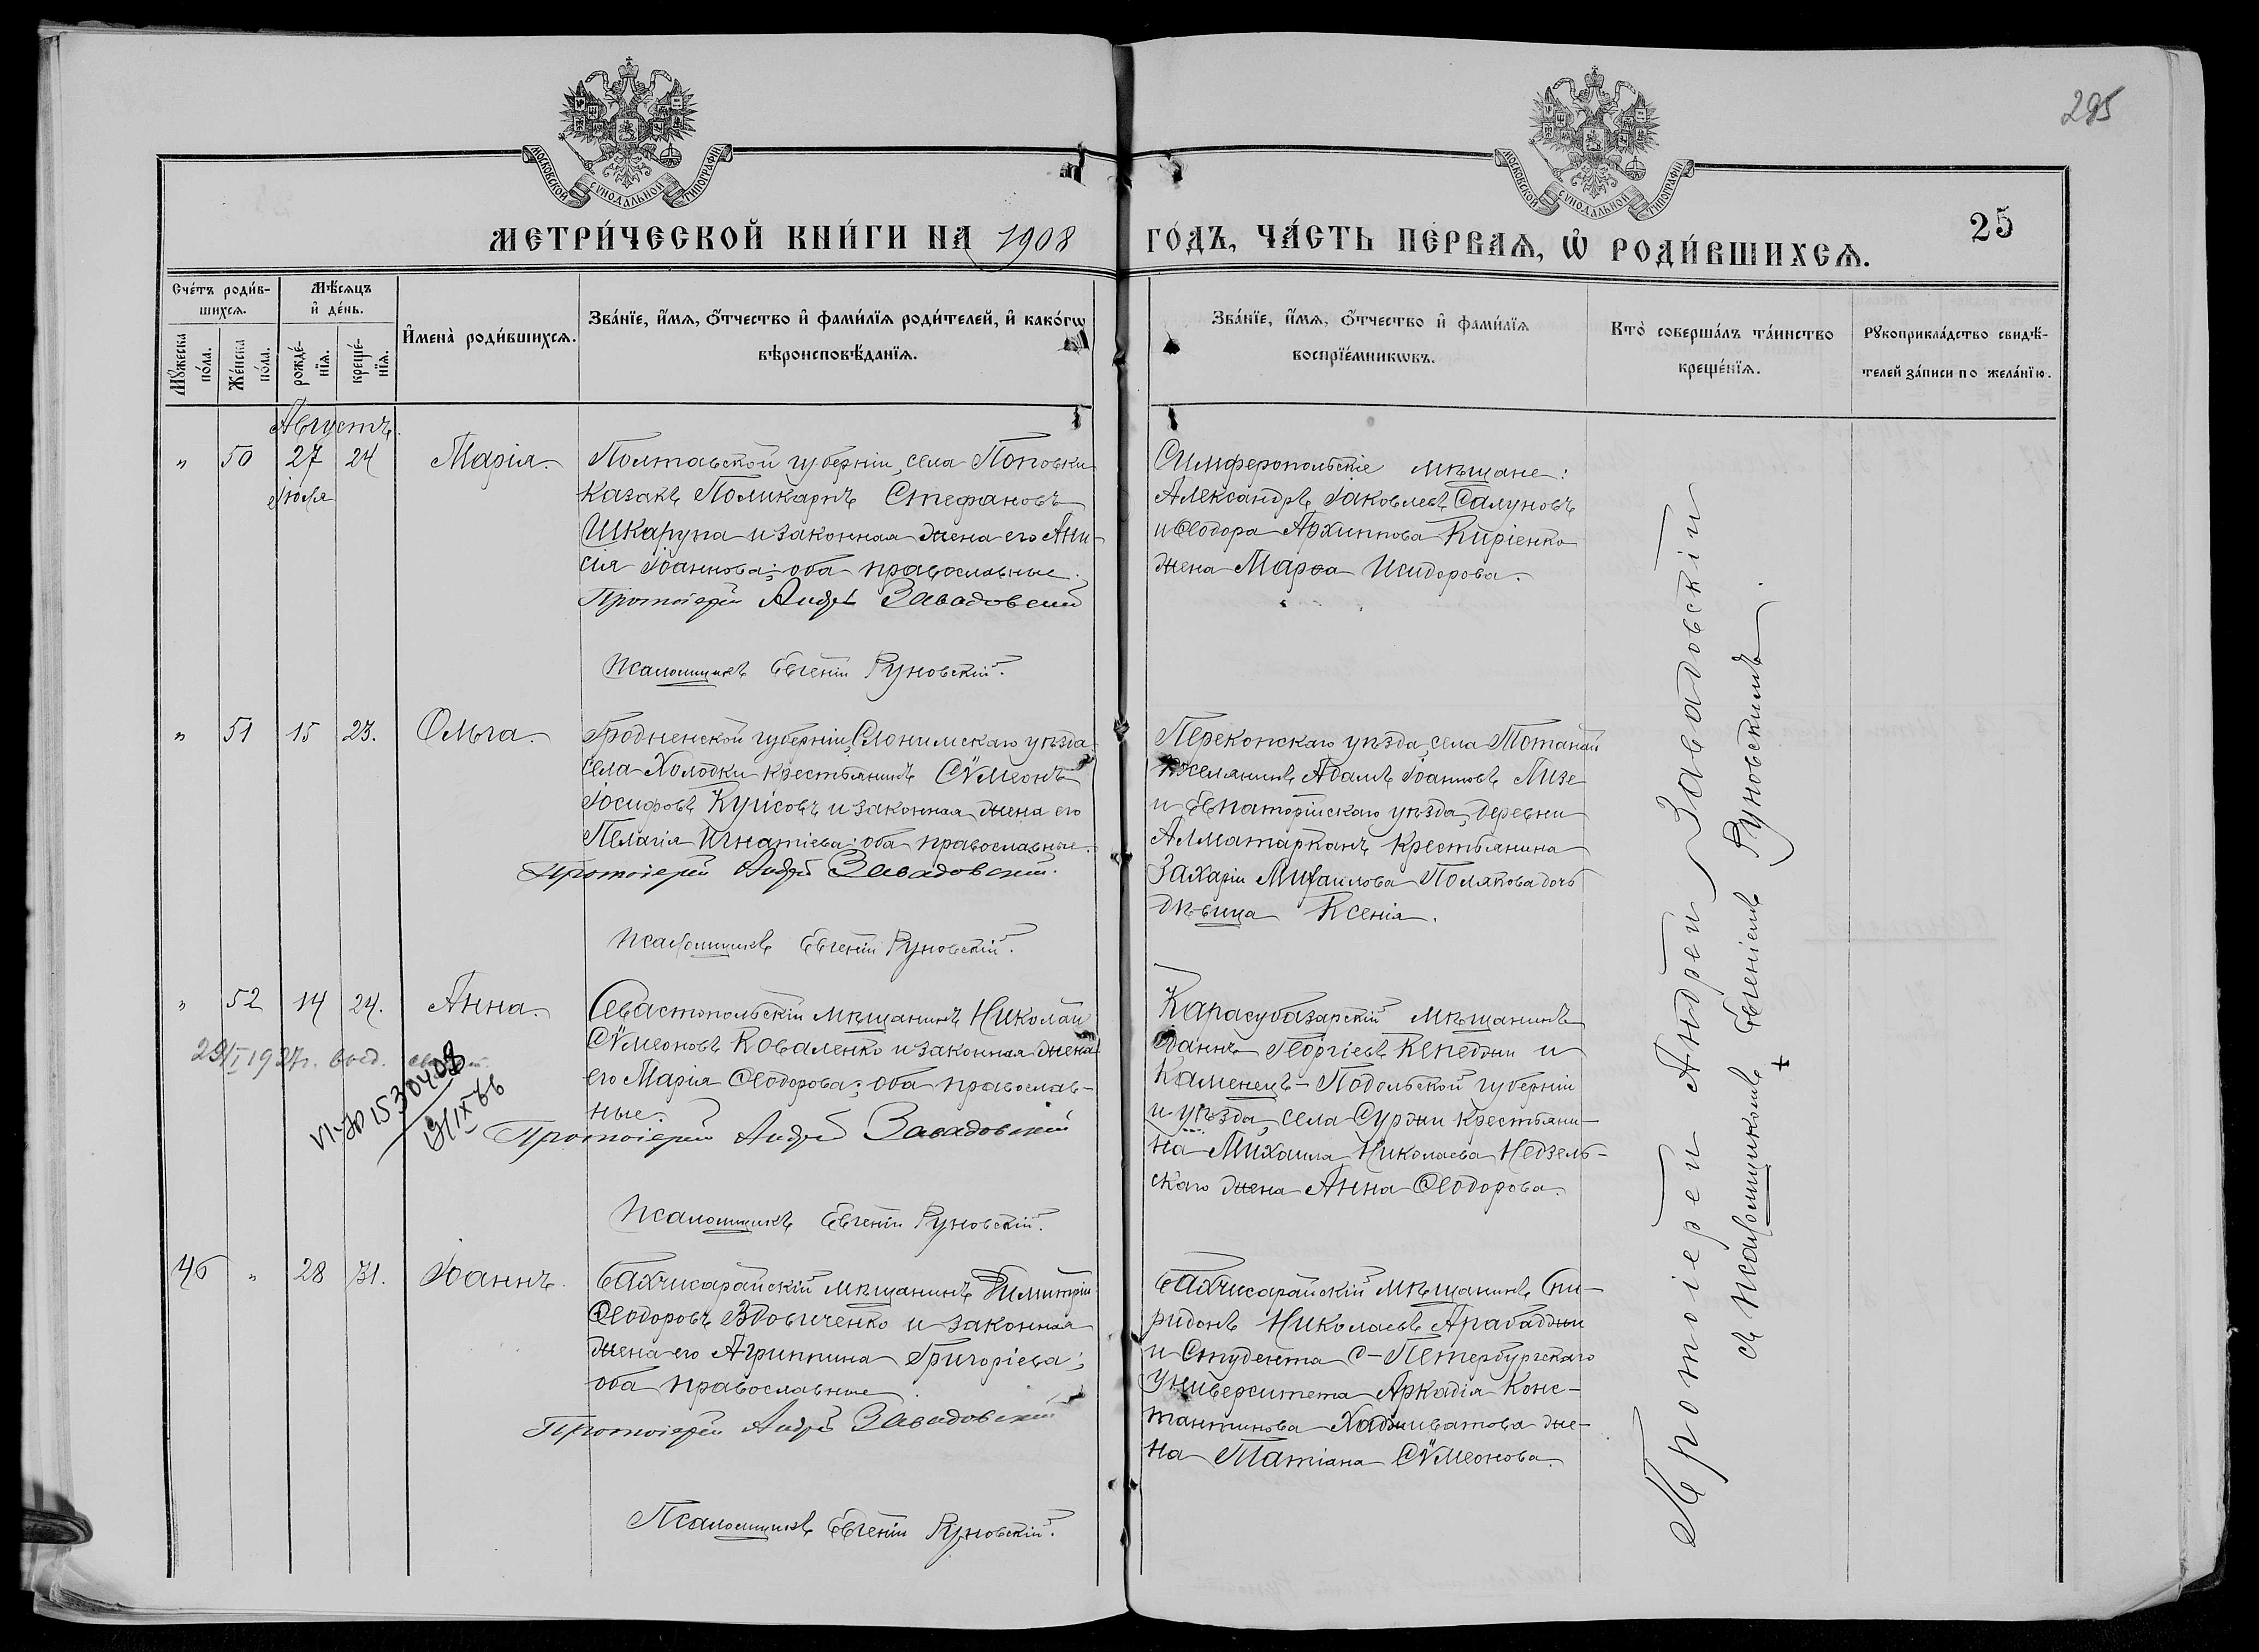 295
МОСКОВСКОЙ СѴНОДАЛЬНОЙ ТИПОГРАФІИ
МОСКОВСКОЙ СѴНОДАЛЬНОЙ ТИПОГРАФІИ
МЕТРИ́ЧЕСКОЙ КНИ́ГИ НА 1908
ГО́ДЪ, ЧА́СТЬ ПЕ́РВАѦ, Ѡ РОДИ́ВШИХСѦ.
25
Сче́тъ роди́в-
шихсѧ.
Мꙋ́жеска
по́ла.
Же́нска
по́ла.
Мѣ́сѧцъ
и҆ де́нь.
рожде́-
нїѧ.
креще́-
нїѧ.
И҆мена̀ роди́вшихсѧ.
Зва́нїе, и҆́мѧ, ѻ҆́тчество и҆ фами́лїѧ роди́телей, и҆ како́гѡ
вѣроисповѣ́данїѧ.
Зва́нїе, и҆́мѧ, ѻ҆́тчество и҆ фами́лїѧ
воспрїе́мникѡвъ.
Кто̀ соверша́лъ та́инство
креще́нїѧ.
Рꙋкоприкла́дство свидѣ́-
телей за́писи по жела́нїю.
Августъ.
" 50 27 24 Марія.
Іюля
Полтавской губерніи, села Поповки
казакъ Поликарпъ Стефановъ
Шкарупа и законная жена его Ани-
сія Іоаннова; оба православные.
Протоіерей Андрей Завадовскій
Псаломщикъ Евгеній Руновскій.
Симферопольскіе мѣщане:
Александръ Іаковлевъ Салуновъ
и Ѳеодора Архиппова Киріенко
жена Марѳа Исидорова.
" 51 15 23. Ольга.
Гродненской губерніи, Слонимскаго уѣзда
села Холодки крестьянинъ Сѵмеонъ
Іосифовъ Курисовъ и законная жена его
Пелагія Игнатіева; оба православные.
Протоіерей Андрей Завадовскій.
Псаломщикъ Евгеній Руновскій.
Перекопскаго уѣзда, села Тотанай
поселянинъ Адамъ Іоанновъ Лизе
и Евпаторійскаго уѣзда, деревни
Алматарканъ крестьянина
Захаріи Михаилова Полякова дочь
дѣвица Ксенія.
" 52 14 24. Анна.
VI-ЯР 1530408
Севастопольскій мѣщанинъ Николай
Сѵмеоновъ Коваленко и законная жена
его Марія Ѳеодорова; оба православ-
ные.
Протоіерей Андрей Завадовскій
Псаломщикъ Евгеній Руновскій.
Карасубазарскій мѣщанинъ
Іоаннъ Георгіевъ Кепеджи и
Каменецъ-Подольской губерніи
и уѣзда, села Суржи крестьяни-
на Михаила Николаева Недзель-
скаго жена Анна Ѳеодорова.
46 " 28 31. Іоаннъ.
Бахчисарайскій мѣщанинъ Димитрій
Ѳеодоровъ Вдовиченко и законная
жена его Агриппина Григоріева;
оба православные.
Протоіерей Андрей Завадовскій
Псаломщикъ Евгеній Руновскій.
Бахчисарайскій мѣщанинъ Спи-
ридонъ Николаевъ Арабаджи
и Студента С-Петербургскаго
Университета Аркадія Конс-
тантинова Хадживатова же-
на Татіана Сѵмеонова.
Протоіерей Андрей Завадовскій
съ псаломщикомъ Евгеніемъ Руновскимъ.